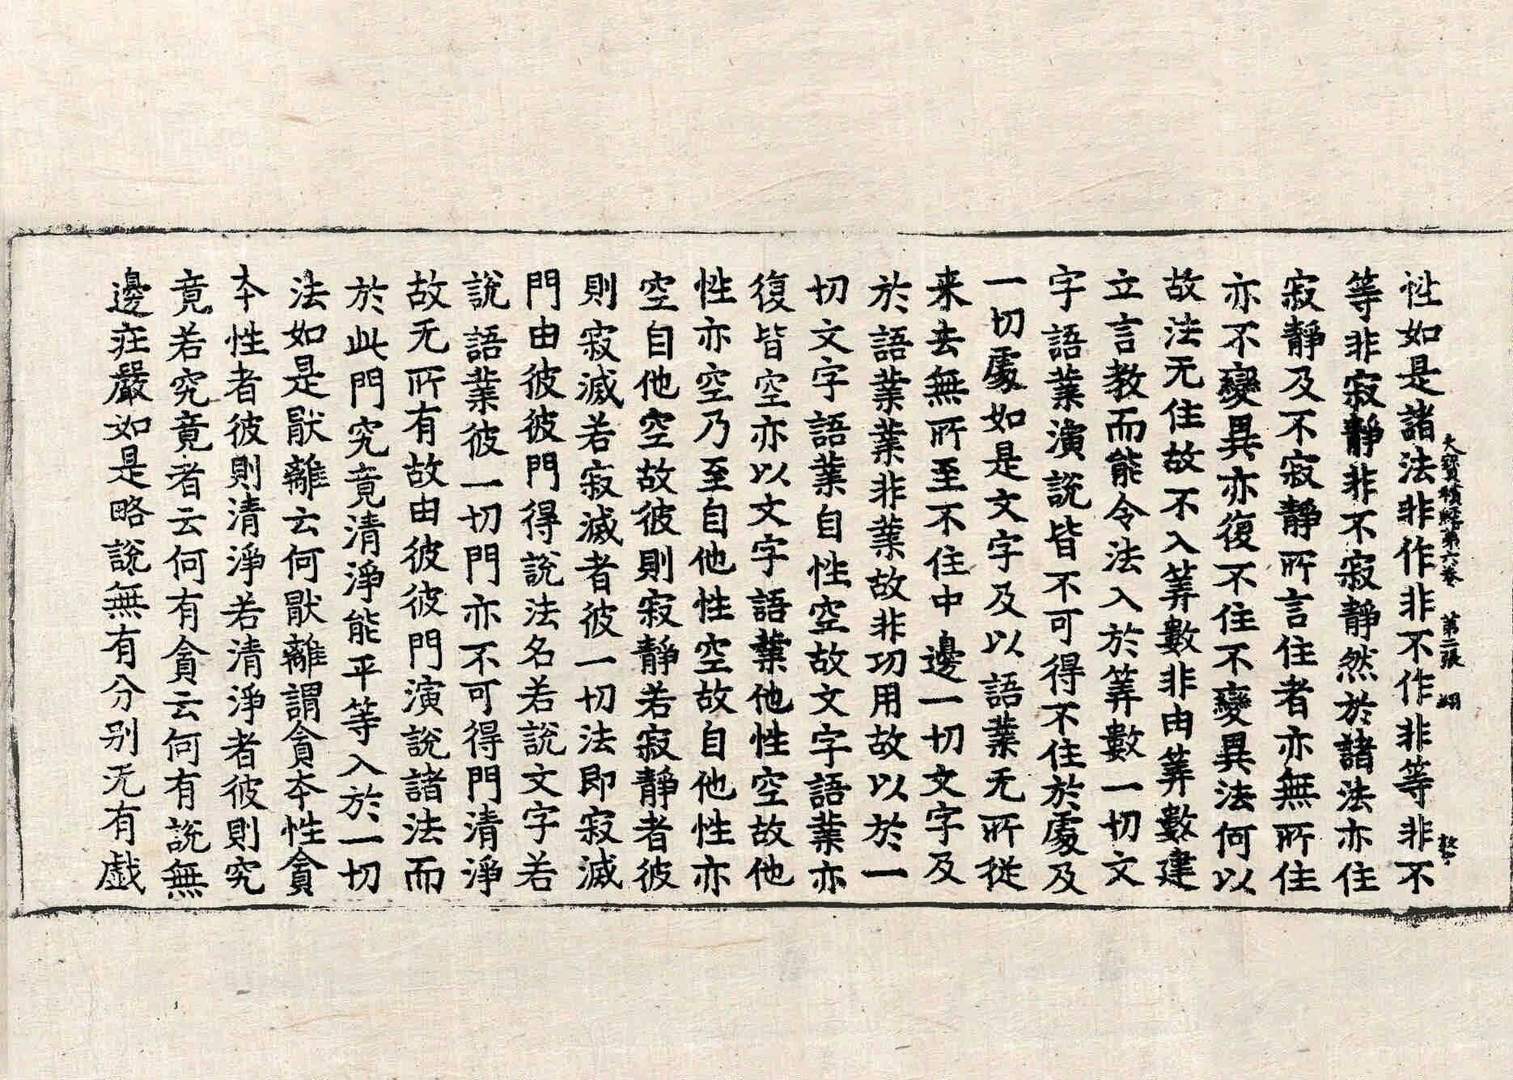 性如是諸法非作非不作非等非不
大寶積經第六卷　第二張　翔
等非寂靜非不寂靜然於諸法亦住
寂靜及不寂靜所言住者亦無所住
亦不變異亦復不住不變異法何以
故法无住故不入筭數非由筭數建
立言教而能令法入於筭數一切文
字語業演說皆不可得不住於處及
一切處如是文字及以語業无所從
来去無所至不住中邊一切文字及
於語業業非業故非功用故以於一
切文字語業自性空故文字語業亦
復皆空亦以文字語業他性空故他
性亦空乃至自他性空故自他性亦
空自他空故彼則寂靜若寂靜者彼
則寂滅若寂滅者彼一切法即寂滅
門由彼彼門得說法名若說文字若
說語業彼一切門亦不可得門清淨
故无所有故由彼彼門演說諸法而
於此門究竟清淨能平等入於一切
法如是猒離云何猒離謂貪夲性貪
夲性者彼則清淨若清淨者彼則究
竟若究竟者云何有貪云何有說無
邊莊嚴如是略說無有分别无有戲